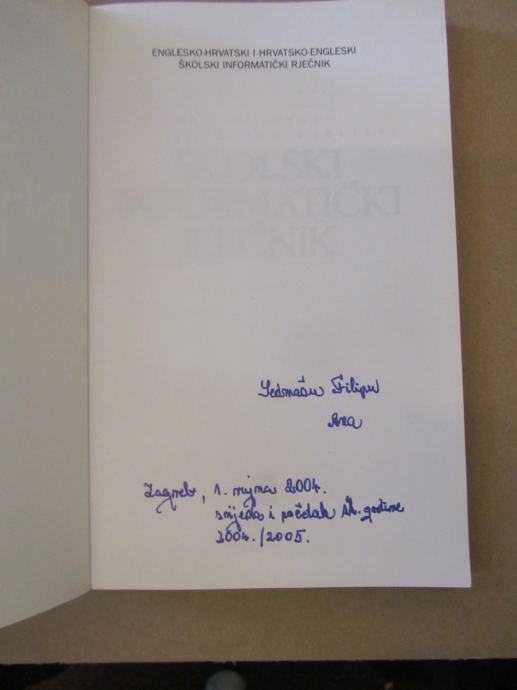 ENGLESKO-HRVATSKI I HRVATSKO-ENGLESKI
ŠKOLSKI INFORMATIČKI RJEČNIK
ŠKOLSKI
INFORMATIČKI
RJEČNIK
Sedmašu Filipu
Ana
Zagreb, 1. rujna 2004.
srijeda i početak šk. godine
2004./2005.